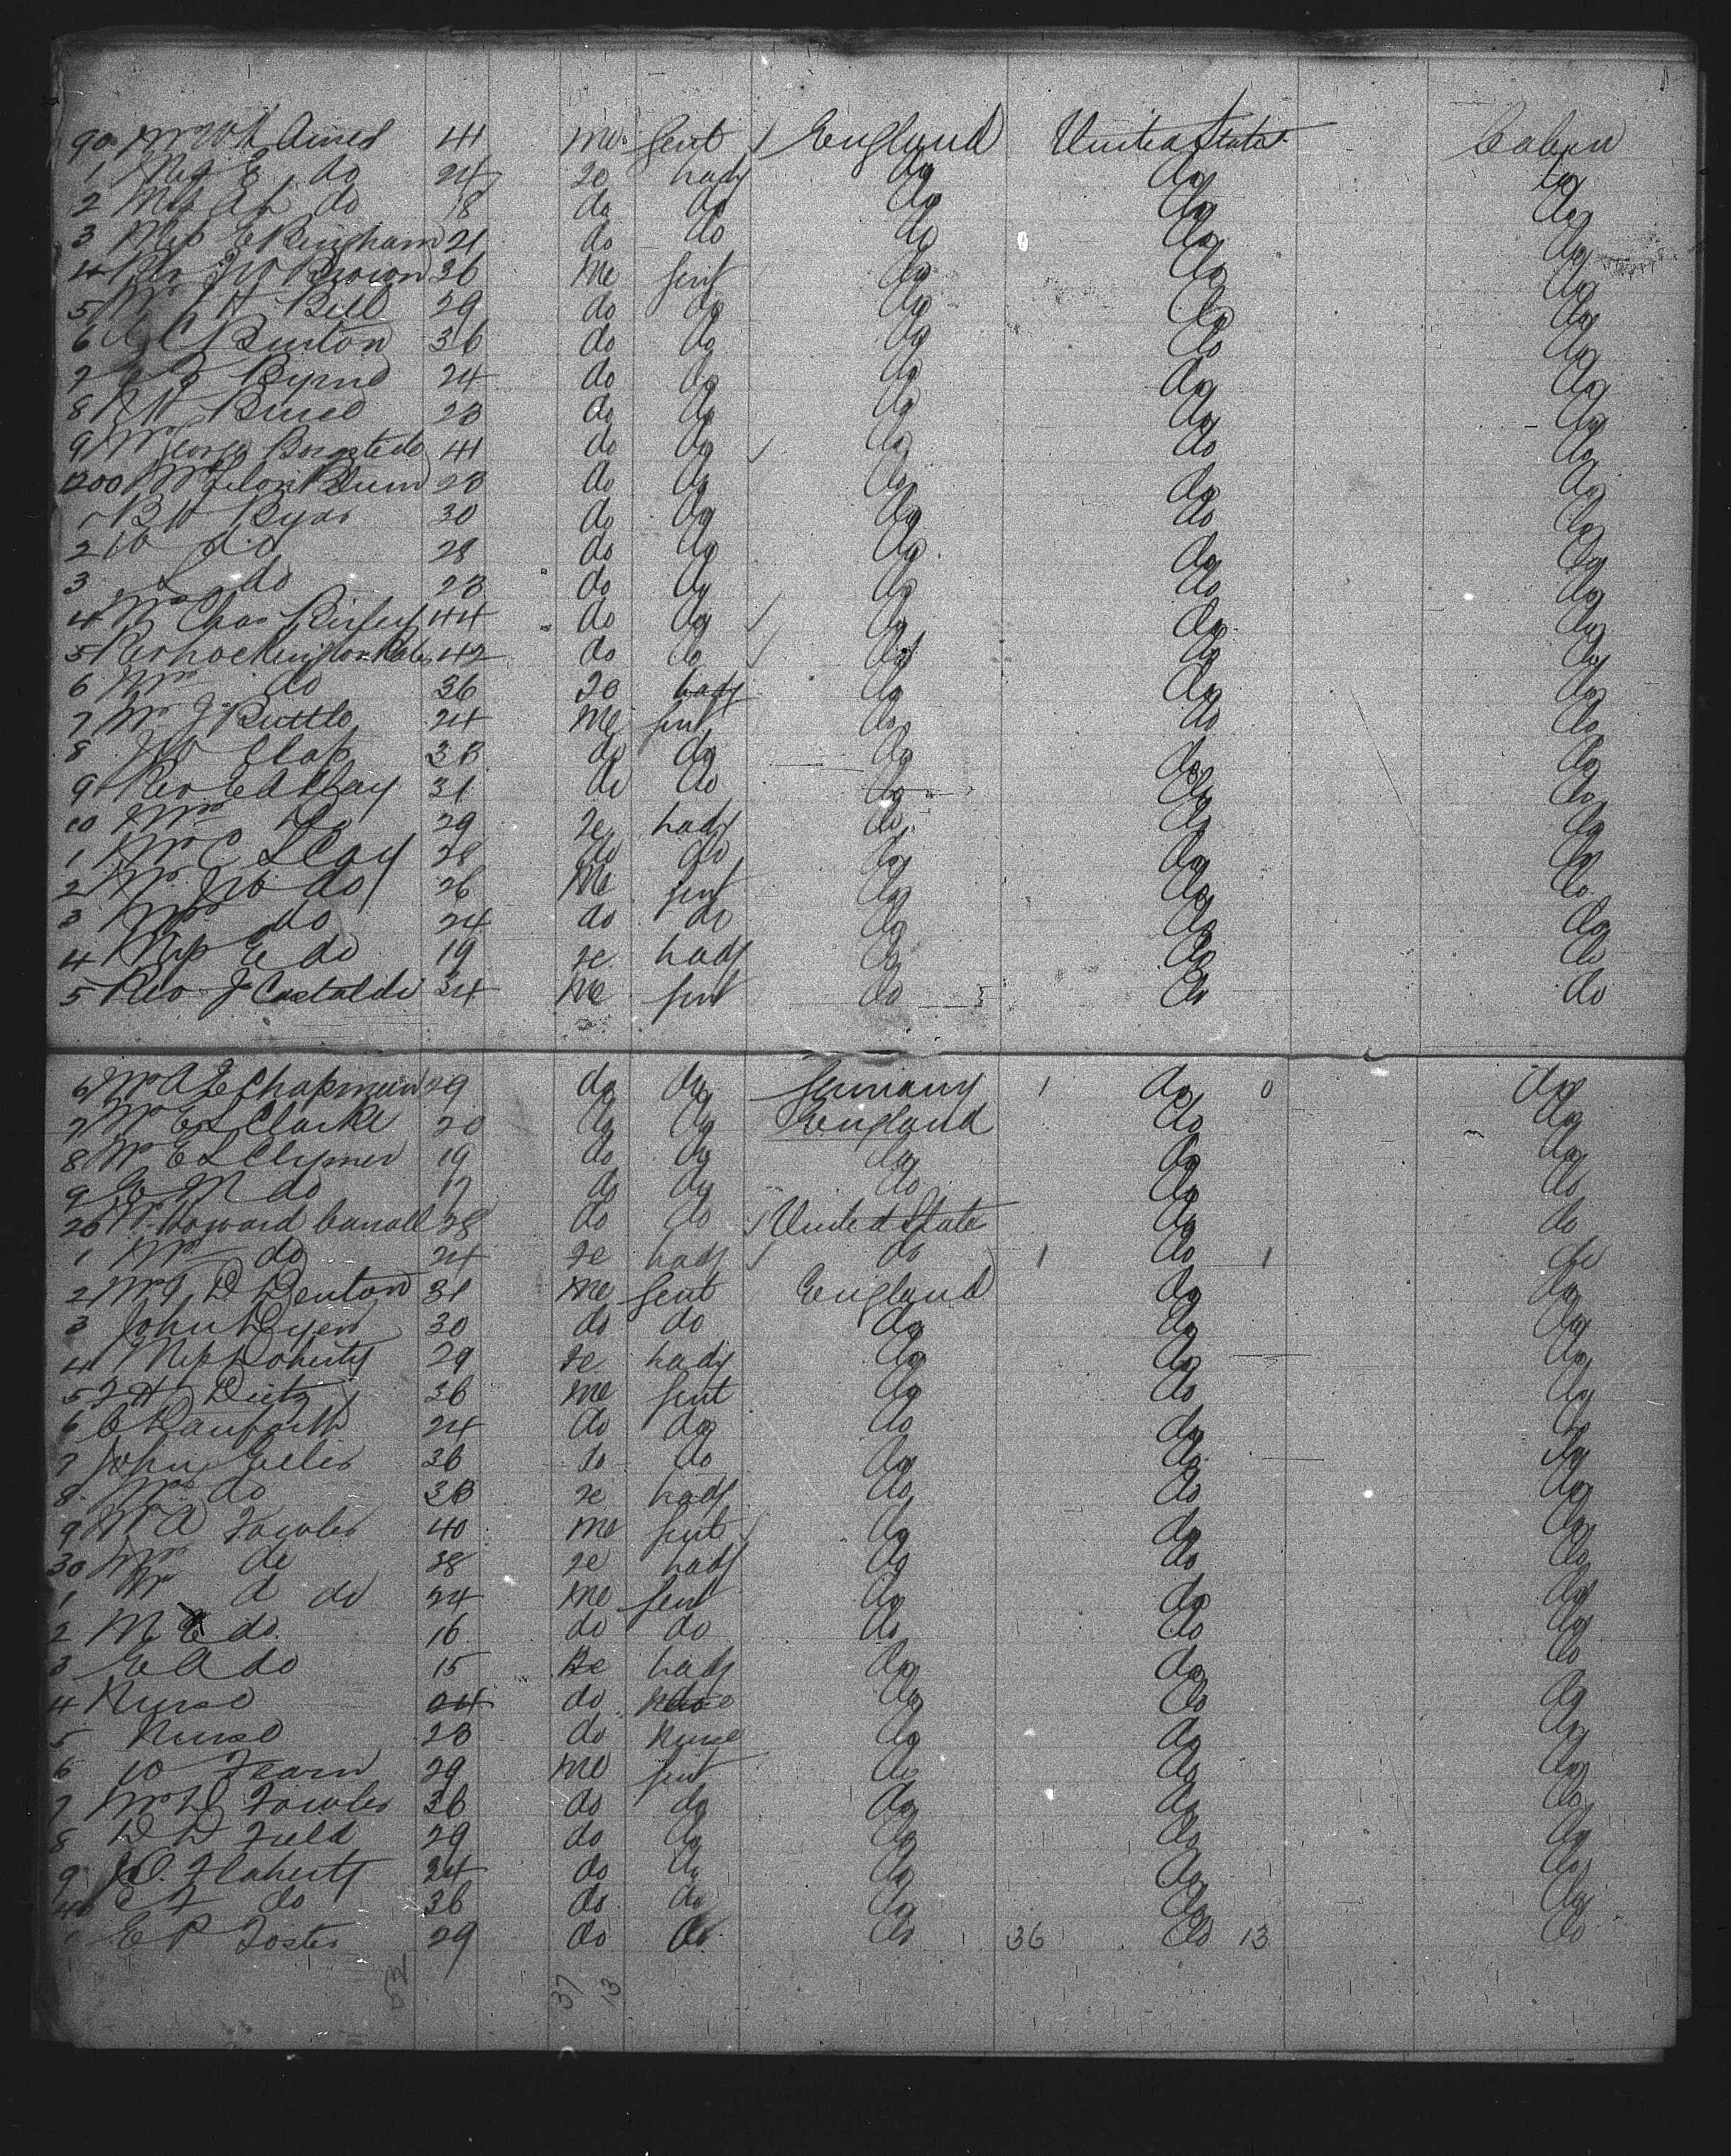 90 Mr W A Ames 44 me Gent / England United States Cabin
1 Mrs E do 24 fe Lady do do do
2 Miss A L do 18 do do do do do
3 Miss E Bingham 21 do do do do do
4 Rev J W Brown 36 me Gent do do do
5 Mr J H Bell 29 do do do do do
6 A C Burton 36 do do do do do
7 Byrne 24 do do do do do
8 Bruce 23 do do do do do
9 Mr George 44 do do / do do do
1200 Mr Blum 23 do do do do do
1 B W 30 do do do do do
2 W do 28 do do do do do
3 L do 23 do do do do do
4 Mr Chas 44 do do / do do do
5 Rev 42 do do / do do do
6 Mrs do 36 fe Lady do do do
7 Mr J Buttle 24 me Gent do do do
8 Clap 33 do do do do do
9 Rev E A Clay 31 do do do do do
10 Mrs do 29 fe Lady do do do
1 C L Clay 28 do do do do do
2 Mr do 26 me Gent do do do
3 Mrs do 24 do do do do do
4 Miss E do 19 fe Lady do do do
5 Rev J Castaldi 34 me Gent do do do
6 Mr A E Chapman 29 do do Germany 1 do 0 do
7 Mr E L Clarke 20 do do England do do
8 Mr E L Clymer 19 do do do do do
9 M do 17 do do do do do
20 Mr Howard Carroll 28 do do / United States do do
1 Mrs do 24 fe Lady / do 1 do 1 do
2 Mr D Denton 31 me Gent England do do
3 John Dyer 30 do do do do do
4 Miss Doherty 29 fe Lady do do do
5 F H Dietz 36 me Gent do do do
6 C Danforth 24 do do do do do
7 John 36 do do do do do
8 Mrs do 33 fe Lady do do do
9 Mr A Fowler 40 me Gent / do do do
30 Mrs do 38 fe Lady do do do
1 Mr A do 24 me Gent do do do
2 M E do 16 do do do do do
3 E A do 15 fe Lady do do do
4 Nurse 24 do do do do
5 Nurse 23 do Nurse do do do
6 W Fearn 29 me Gent do do do
7 Mr D Fowler 36 do do do do do
8 D D Field 29 do do do do do
9 Flaherty 24 do do do do do
40 C F do 36 do do do do do
1 E P Foster 29 do do do 36 do 13 do
37 13